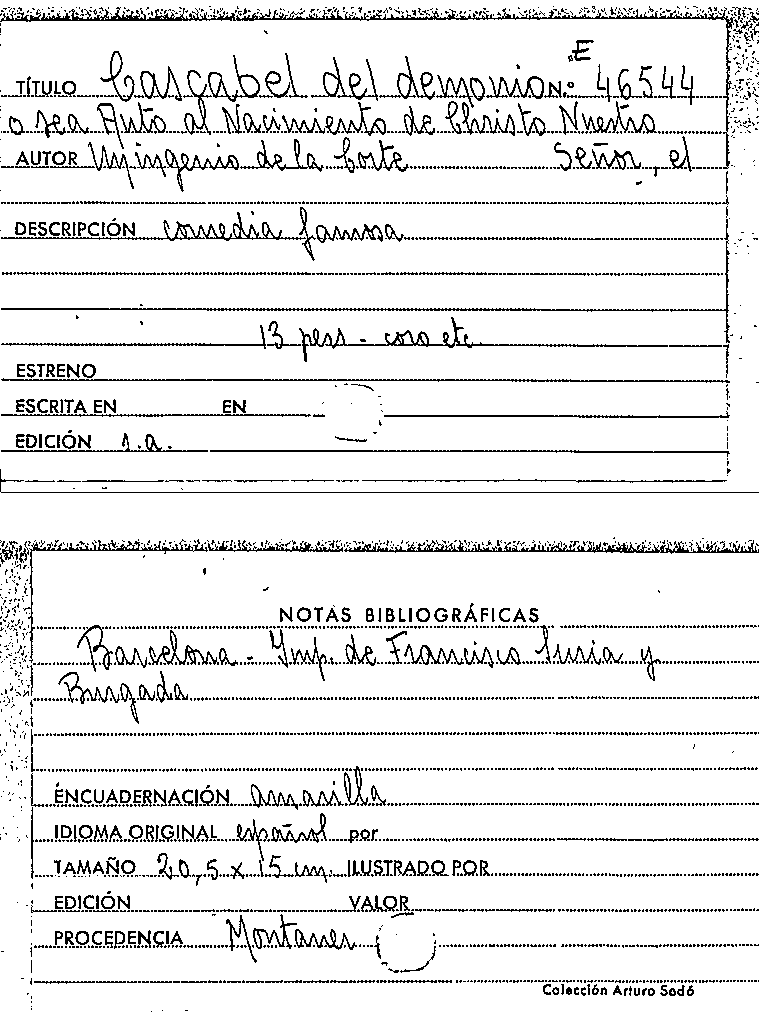 E
TÍTULO Cascabel del demonio N.º 46544
o sea Auto al Nacimiento de Christo Nuestro
AUTOR Un ingenio de la Corte Señor, el
DESCRIPCIÓN comedia famosa
13 pers - coro etc.
ESTRENO
ESCRITA EN EN
EDICIÓN s.a.
NOTAS BIBLIOGRÁFICAS
Barcelona - Imp. de Francisco Suria y
Burgada
ENCUADERNACIÓN amarilla
IDIOMA ORIGINAL español por
TAMAÑO 20,5 x 15 cm. ILUSTRADO POR
EDICIÓN VALOR
PROCEDENCIA Montaner
Colección Arturo Sedó